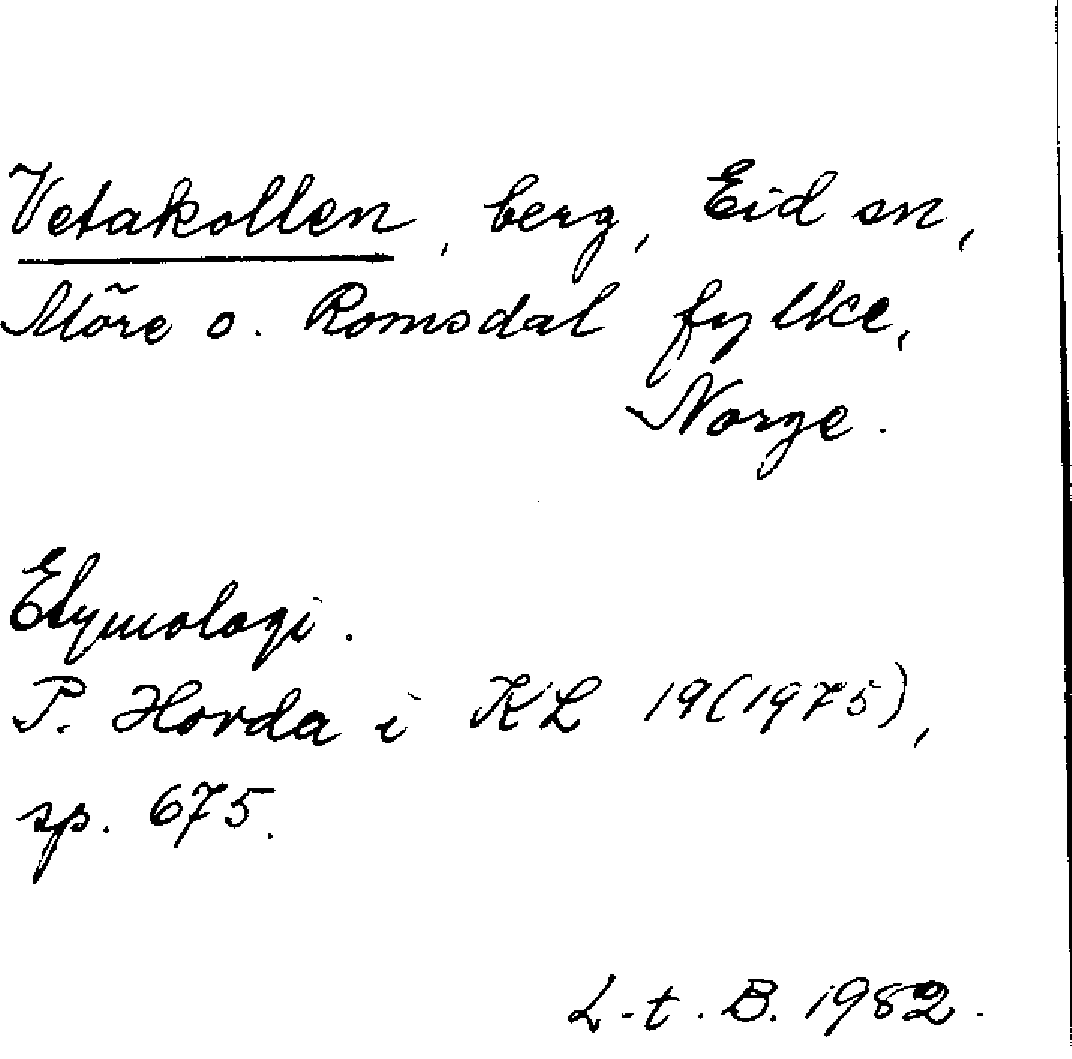 Vetakollen, berg, Eid sn,
Möre o. Romsdal fylke,
Norge.
Etymologi.
P. Hovda i KL 19(1975),
sp. 675.
L.t.B. 1982.